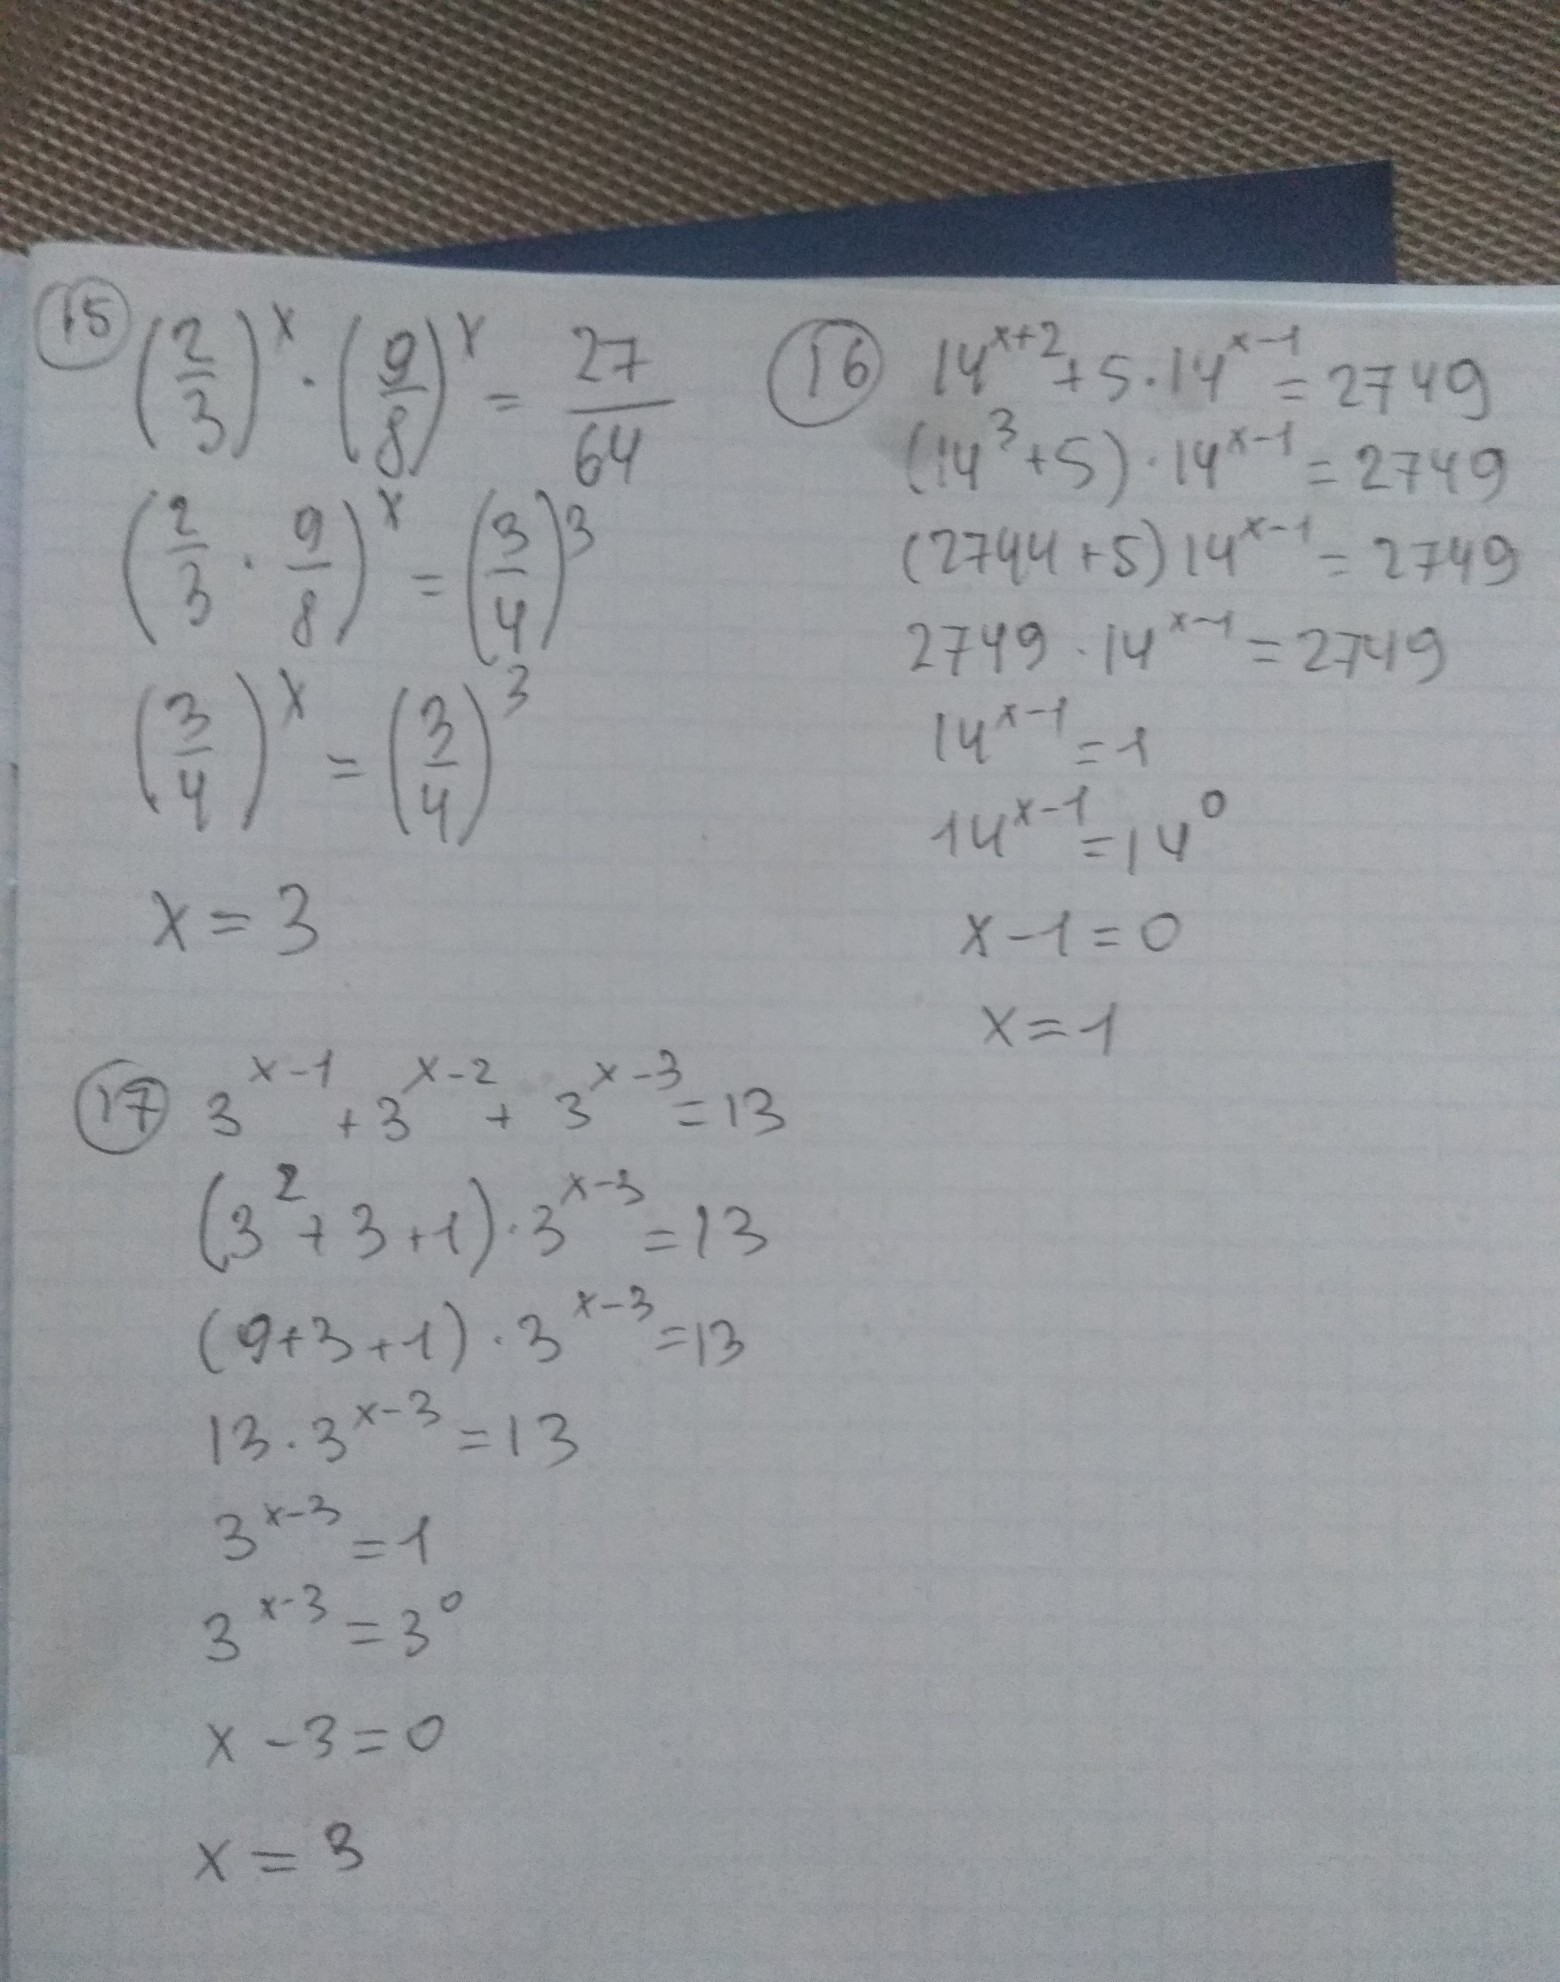 15 (2/3)^x · (9/8)^x = 27/64
(2/3 · 9/8)^x = (3/4)^3
(3/4)^x = (3/4)^3
x = 3
16 14^{x+2} + 5 · 14^{x-1} = 2749
(14^3 + 5) · 14^{x-1} = 2749
(2744 + 5) 14^{x-1} = 2749
2749 · 14^{x-1} = 2749
14^{x-1} = 1
14^{x-1} = 14^0
x - 1 = 0
x = 1
17 3^{x-1} + 3^{x-2} + 3^{x-3} = 13
(3^2 + 3 + 1) · 3^{x-3} = 13
(9 + 3 + 1) · 3^{x-3} = 13
13 · 3^{x-3} = 13
3^{x-3} = 1
3^{x-3} = 3^0
x - 3 = 0
x = 3